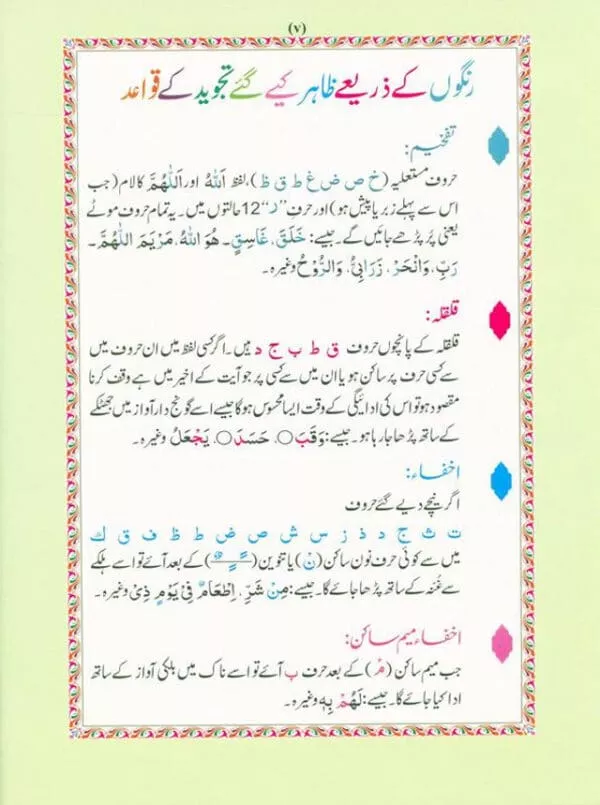 (۷)
رنگوں کے ذریعے ظاہر کیے گئے تجوید کے قواعد
تفخیم:
حروف مستعلیہ (خ ص ض غ ط ق ظ)، لفظ اَللہُ اور اَللّٰهُمَّ کا لام (جب
اس سے پہلے زبر یا پیش ہو) اور حرف ”ر“ 12 حالتوں میں۔ یہ تمام حروف موٹے
یعنی پُر پڑھے جائیں گے۔ جیسے: خَلَقَ، غَاسِقٍ۔ هُوَ اللّٰهُ، مَرْيَمَ اللّٰهُمَّ۔
رَبِّ، وَانْحَرْ، زَرَابِيُّ، وَالرُّوْحُ وغیرہ۔
قلقلہ:
قلقلہ کے پانچوں حروف ق ط ب ج د ہیں۔ اگر کسی لفظ میں ان حروف میں
سے کسی حرف پر سکون ہو یا ان میں سے کسی پر جو آیت کے اخیر میں ہے وقف کرنا
مقصود ہو تو اس کی ادائیگی کے وقت ایسا محسوس ہوگا جیسے اسے گونج دار آواز میں جھٹکے
کے ساتھ پڑھا جا رہا ہو۔ جیسے: وَقَبَ○، حَسَدَ○، يَجْعَلُ وغیرہ۔
اخفاء:
اگر نیچے دیے گئے حروف
ت ث ج د ذ ز س ش ص ض ط ظ ف ق ك
میں سے کوئی حرف نون ساکن (نْ) یا تنوین (ـًـٍـٌ) کے بعد آئے تو اسے ہلکے
سے غُنہ کے ساتھ پڑھا جائے گا۔ جیسے: مِنْ شَرِّ، اِطْعَامٌ فِيْ يَوْمٍ ذِيْ وغیرہ۔
اخفاء میم ساکن:
جب میم ساکن (مْ) کے بعد حرف ب آئے تو اسے ناک میں ہلکی آواز کے ساتھ
ادا کیا جائے گا۔ جیسے: لَهُمْ بِهٖ وغیرہ۔